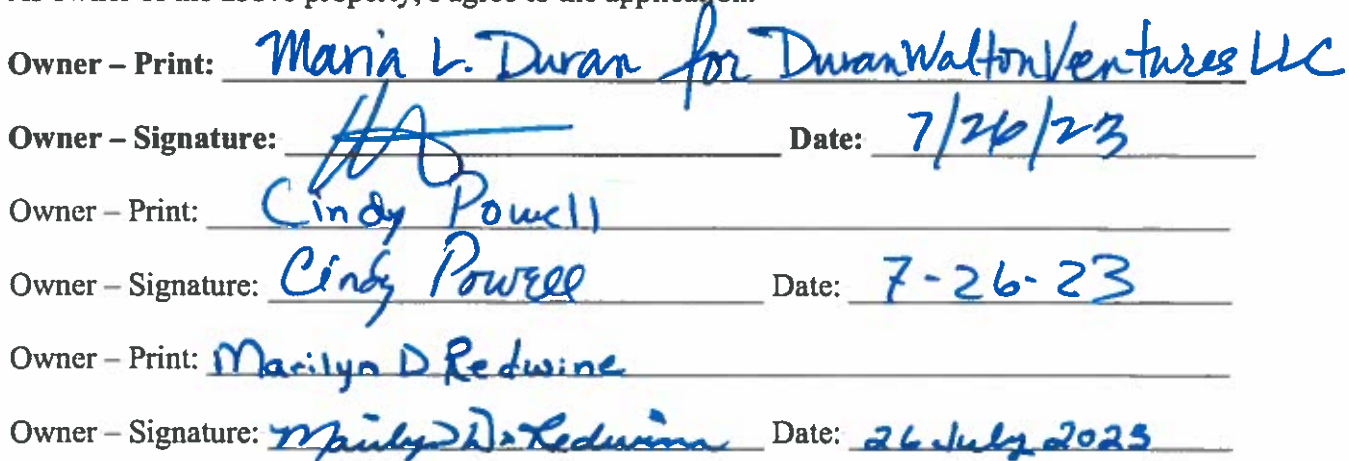 As owner of the above property, I agree to the application.
Owner – Print: Maria L. Duran for DuranWaltonVentures LLC
Owner – Signature: Date: 7/26/23
Owner – Print: Cindy Powell
Owner – Signature: Cindy Powell Date: 7-26-23
Owner – Print: Marilyn D Redwine
Owner – Signature: Marilyn D. Redwine Date: 26 July 2023